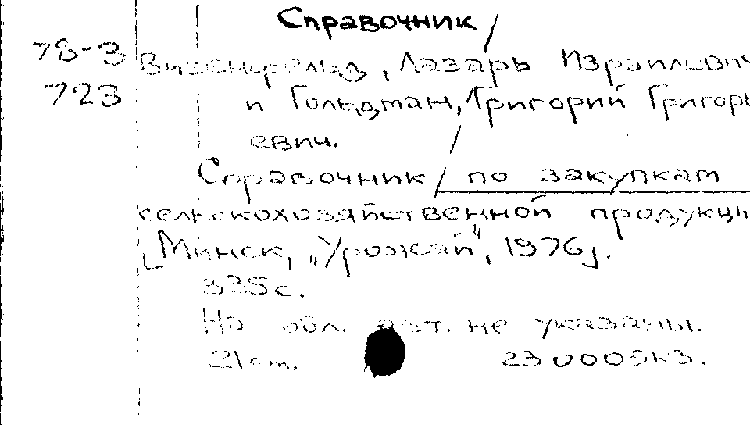 Справочник/
78-3
723
Визенфельд, Лазарь Израилевич
и Гольдман, Григорий Григорь
евич.
Справочник/ по закупкам
сельскохозяйственной продукции
[Минск, „Урожай", 1976].
335 с.
На обл. авт. не указаны.
21 см. 23000экз.